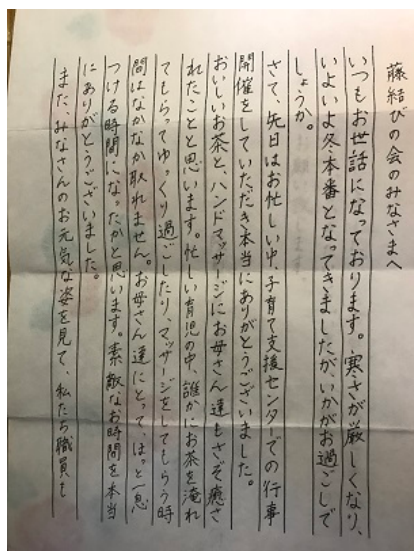 藤結びの会のみなさまへ
いつもお世話になっております。寒さが厳しくなり、
いよいよ冬本番となってきましたが、いかがお過ごしで
しょうか。
さて、先日はお忙しい中、子育て支援センターでの行事
開催をしていただき本当にありがとうございました。
おいしいお茶と、ハンドマッサージにお母さん達もさぞ癒さ
れたことと思います。忙しい育児の中、誰かにお茶を淹れ
てもらってゆっくり過ごしたり、マッサージをしてもらう時
間はなかなか取れません。お母さん達にとって、ほっと一息
つける時間になったかと思います。素敵なお時間を本当
にありがとうございました。
また、みなさんのお元気な姿を見て、私たち職員も